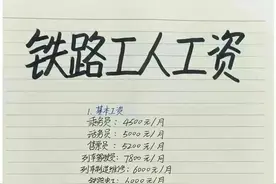 铁路工人工资
1. 基本工资
员: 4500元/月
员: 5000元/月
售票员: 5200元/月
列车 7800元/月
列车制造维修: 6000元/月
6000元/月